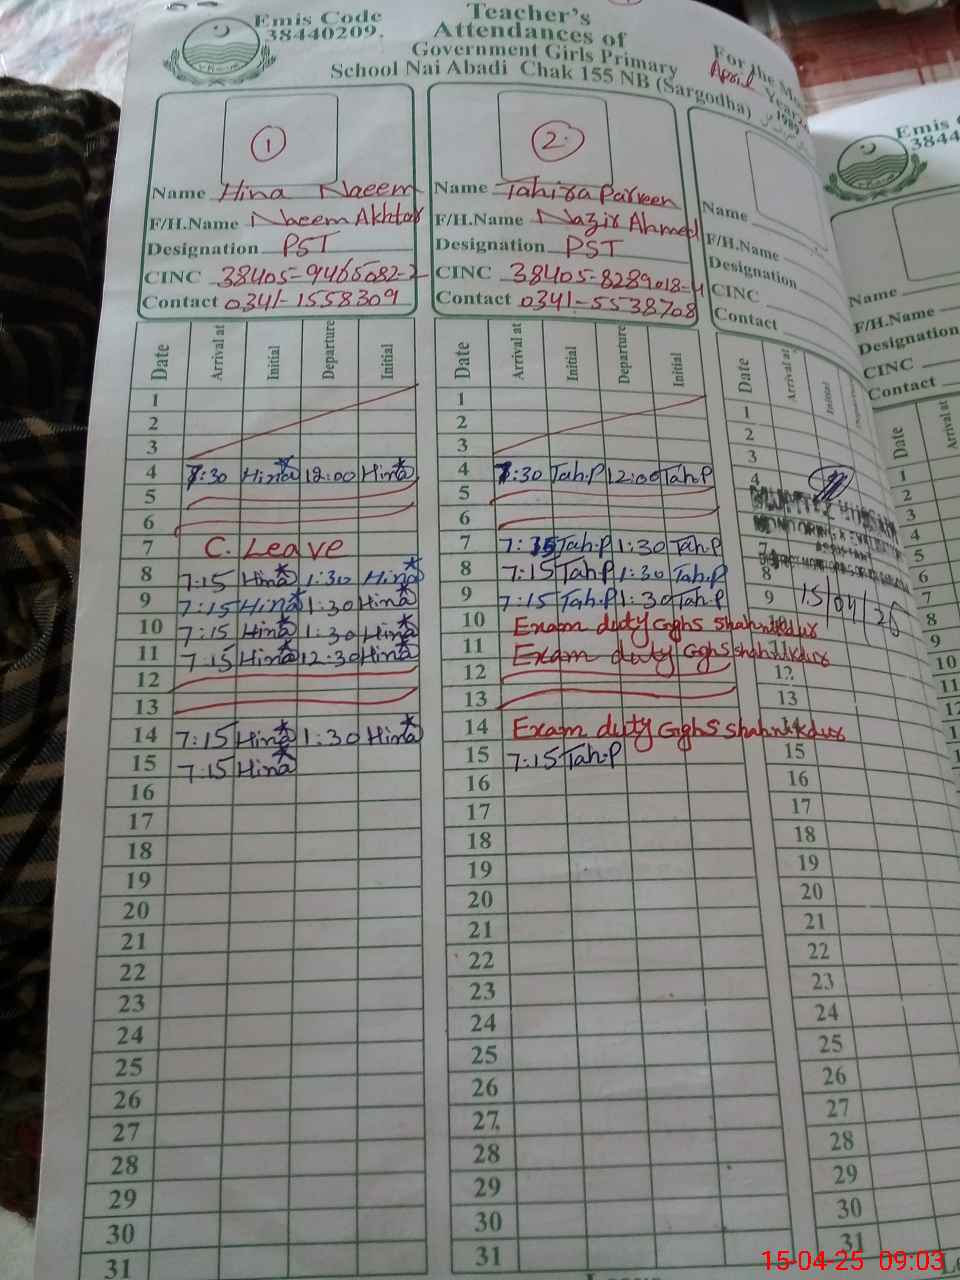 Emis Code
38440209.
Teacher's
Attendances of
Government Girls Primary
School Nai Abadi Chak 155 NB (Sargodha)
For the
April Year
1
Name Hina Naeem
F/H.Name Naeem Akhtar
Designation PST
CINC 38405-9465082-2
Contact 0341-1558309
2
Name Tahira Parveen
F/H.Name Nazir Ahmed
Designation PST
CINC 38405-8289018-4
Contact 0341-5538708
Name
F/H.Name
Designation
CINC
Contact
Date Arrival at Initial Departure Initial
1
2
3
4 7:30 Hina 12:00 Hina
5
6
7 C. Leave
8 7:15 Hina 1:30 Hina
9 7:15 Hina 1:30 Hina
10 7:15 Hina 1:30 Hina
11 7:15 Hina 12:30 Hina
12
13
14 7:15 Hina 1:30 Hina
15 7:15 Hina
16
17
18
19
20
21
22
23
24
25
26
27
28
29
30
31
Date Arrival at Initial Departure Initial
1
2
3
4 7:30 Tah.P 12:00 Tah.P
5
6
7 Tah.P 1:30 Tah.P
8 7:15 Tah.P 1:30 Tah.P
9 7:15 Tah.P 1:30 Tah.P
10 Exam duty GGHS
11 Exam duty GGHS
12
13
14 Exam duty GGHS
15 7:15 Tah.P
16
17
18
19
20
21
22
23
24
25
26
27
28
29
30
31
Date Arrival at Initial
1
2
3
4
7
8
9
15/04/25
12
13
15
16
17
18
19
20
21
22
23
24
25
26
27
28
29
30
31
Emis
3844
Name
F/H.Name
Designation
CINC
Contact
Date Arrival at
1
2
3
4
5
6
7
8
9
10
11
12
15-04-25 09:03